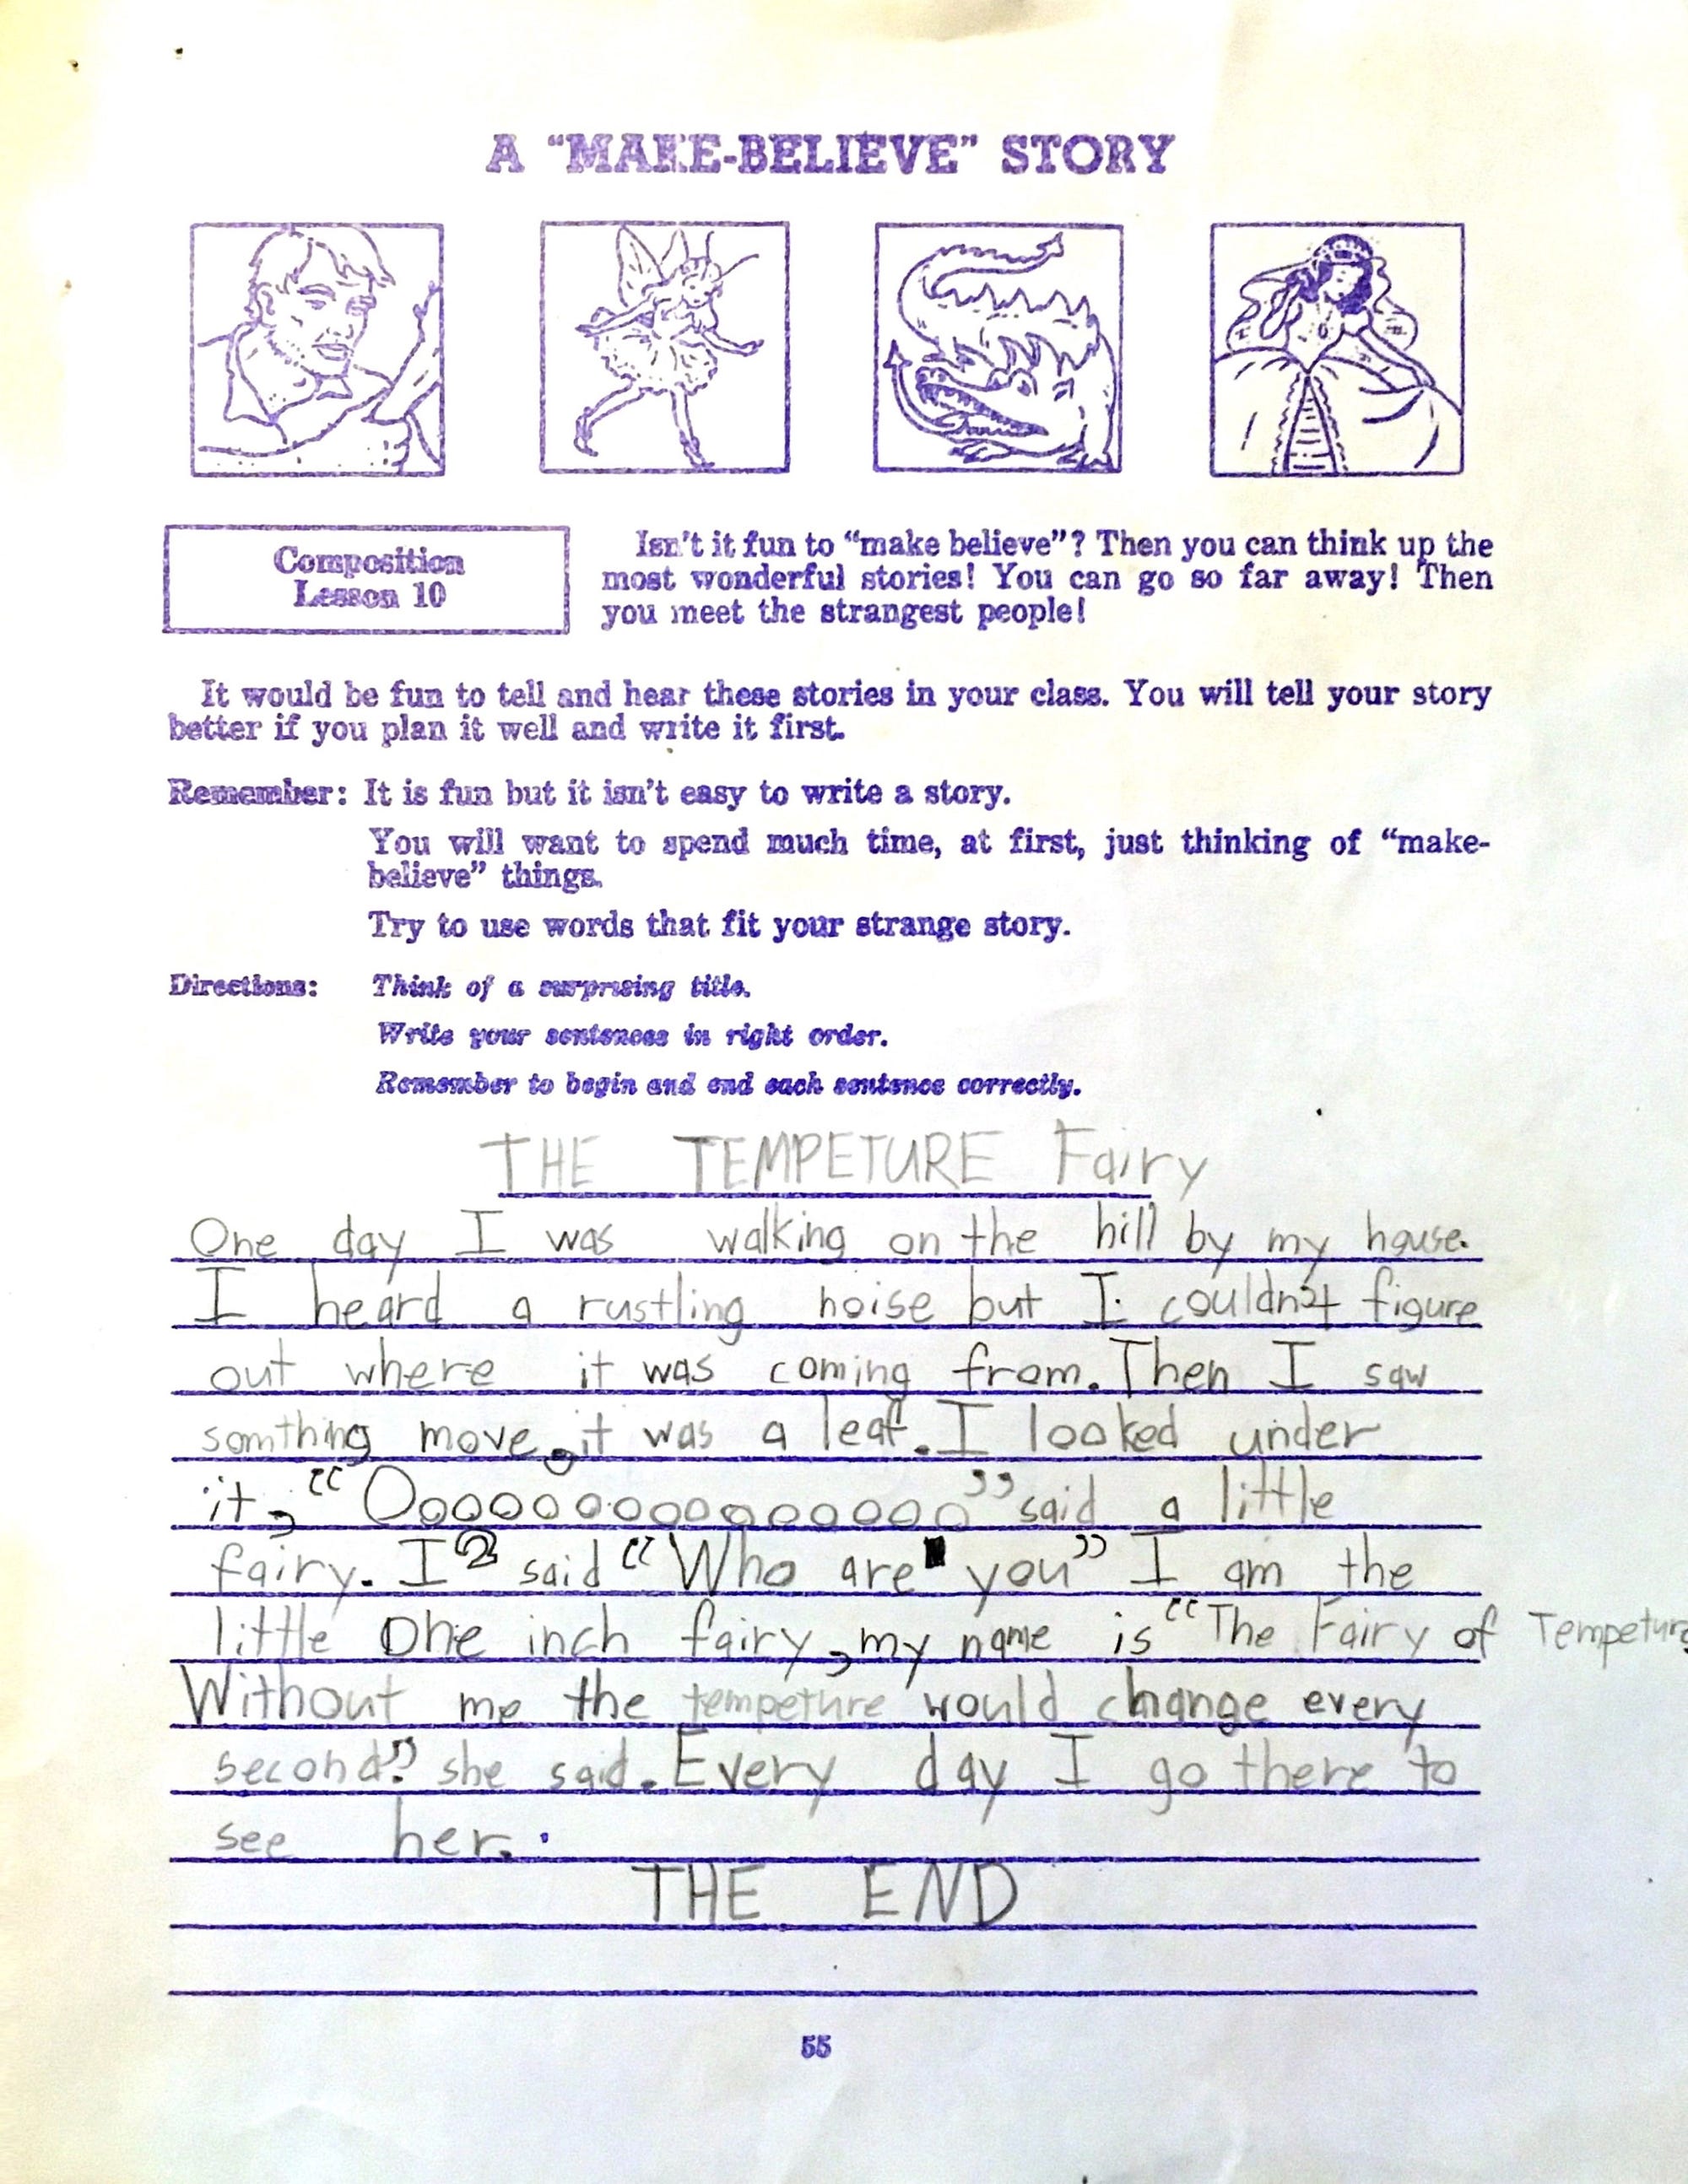 A “MAKE-BELIEVE” STORY
Composition
Lesson 10
Isn't it fun to “make believe”? Then you can think up the
most wonderful stories! You can go so far away! Then
you meet the strangest people!
It would be fun to tell and hear these stories in your class. You will tell your story
better if you plan it well and write it first.
Remember: It is fun but it isn't easy to write a story.
You will want to spend much time, at first, just thinking of “make-
believe” things.
Try to use words that fit your strange story.
Directions: Think of a surprising title.
Write your sentences in right order.
Remember to begin and end each sentence correctly.
THE TEMPETURE Fairy
One day I was walking on the hill by my house.
I heard a rustling noise but I couldn't figure
out where it was coming from. Then I saw
somthing move, it was a leaf. I looked under
it, “Oooooooooooooooo” said a little
fairy. I said “Who are you” I am the
little One inch fairy, my name is “The Fairy of Tempeture
Without me the tempeture would change every
second.” she said. Every day I go there to
see her.
THE END
55